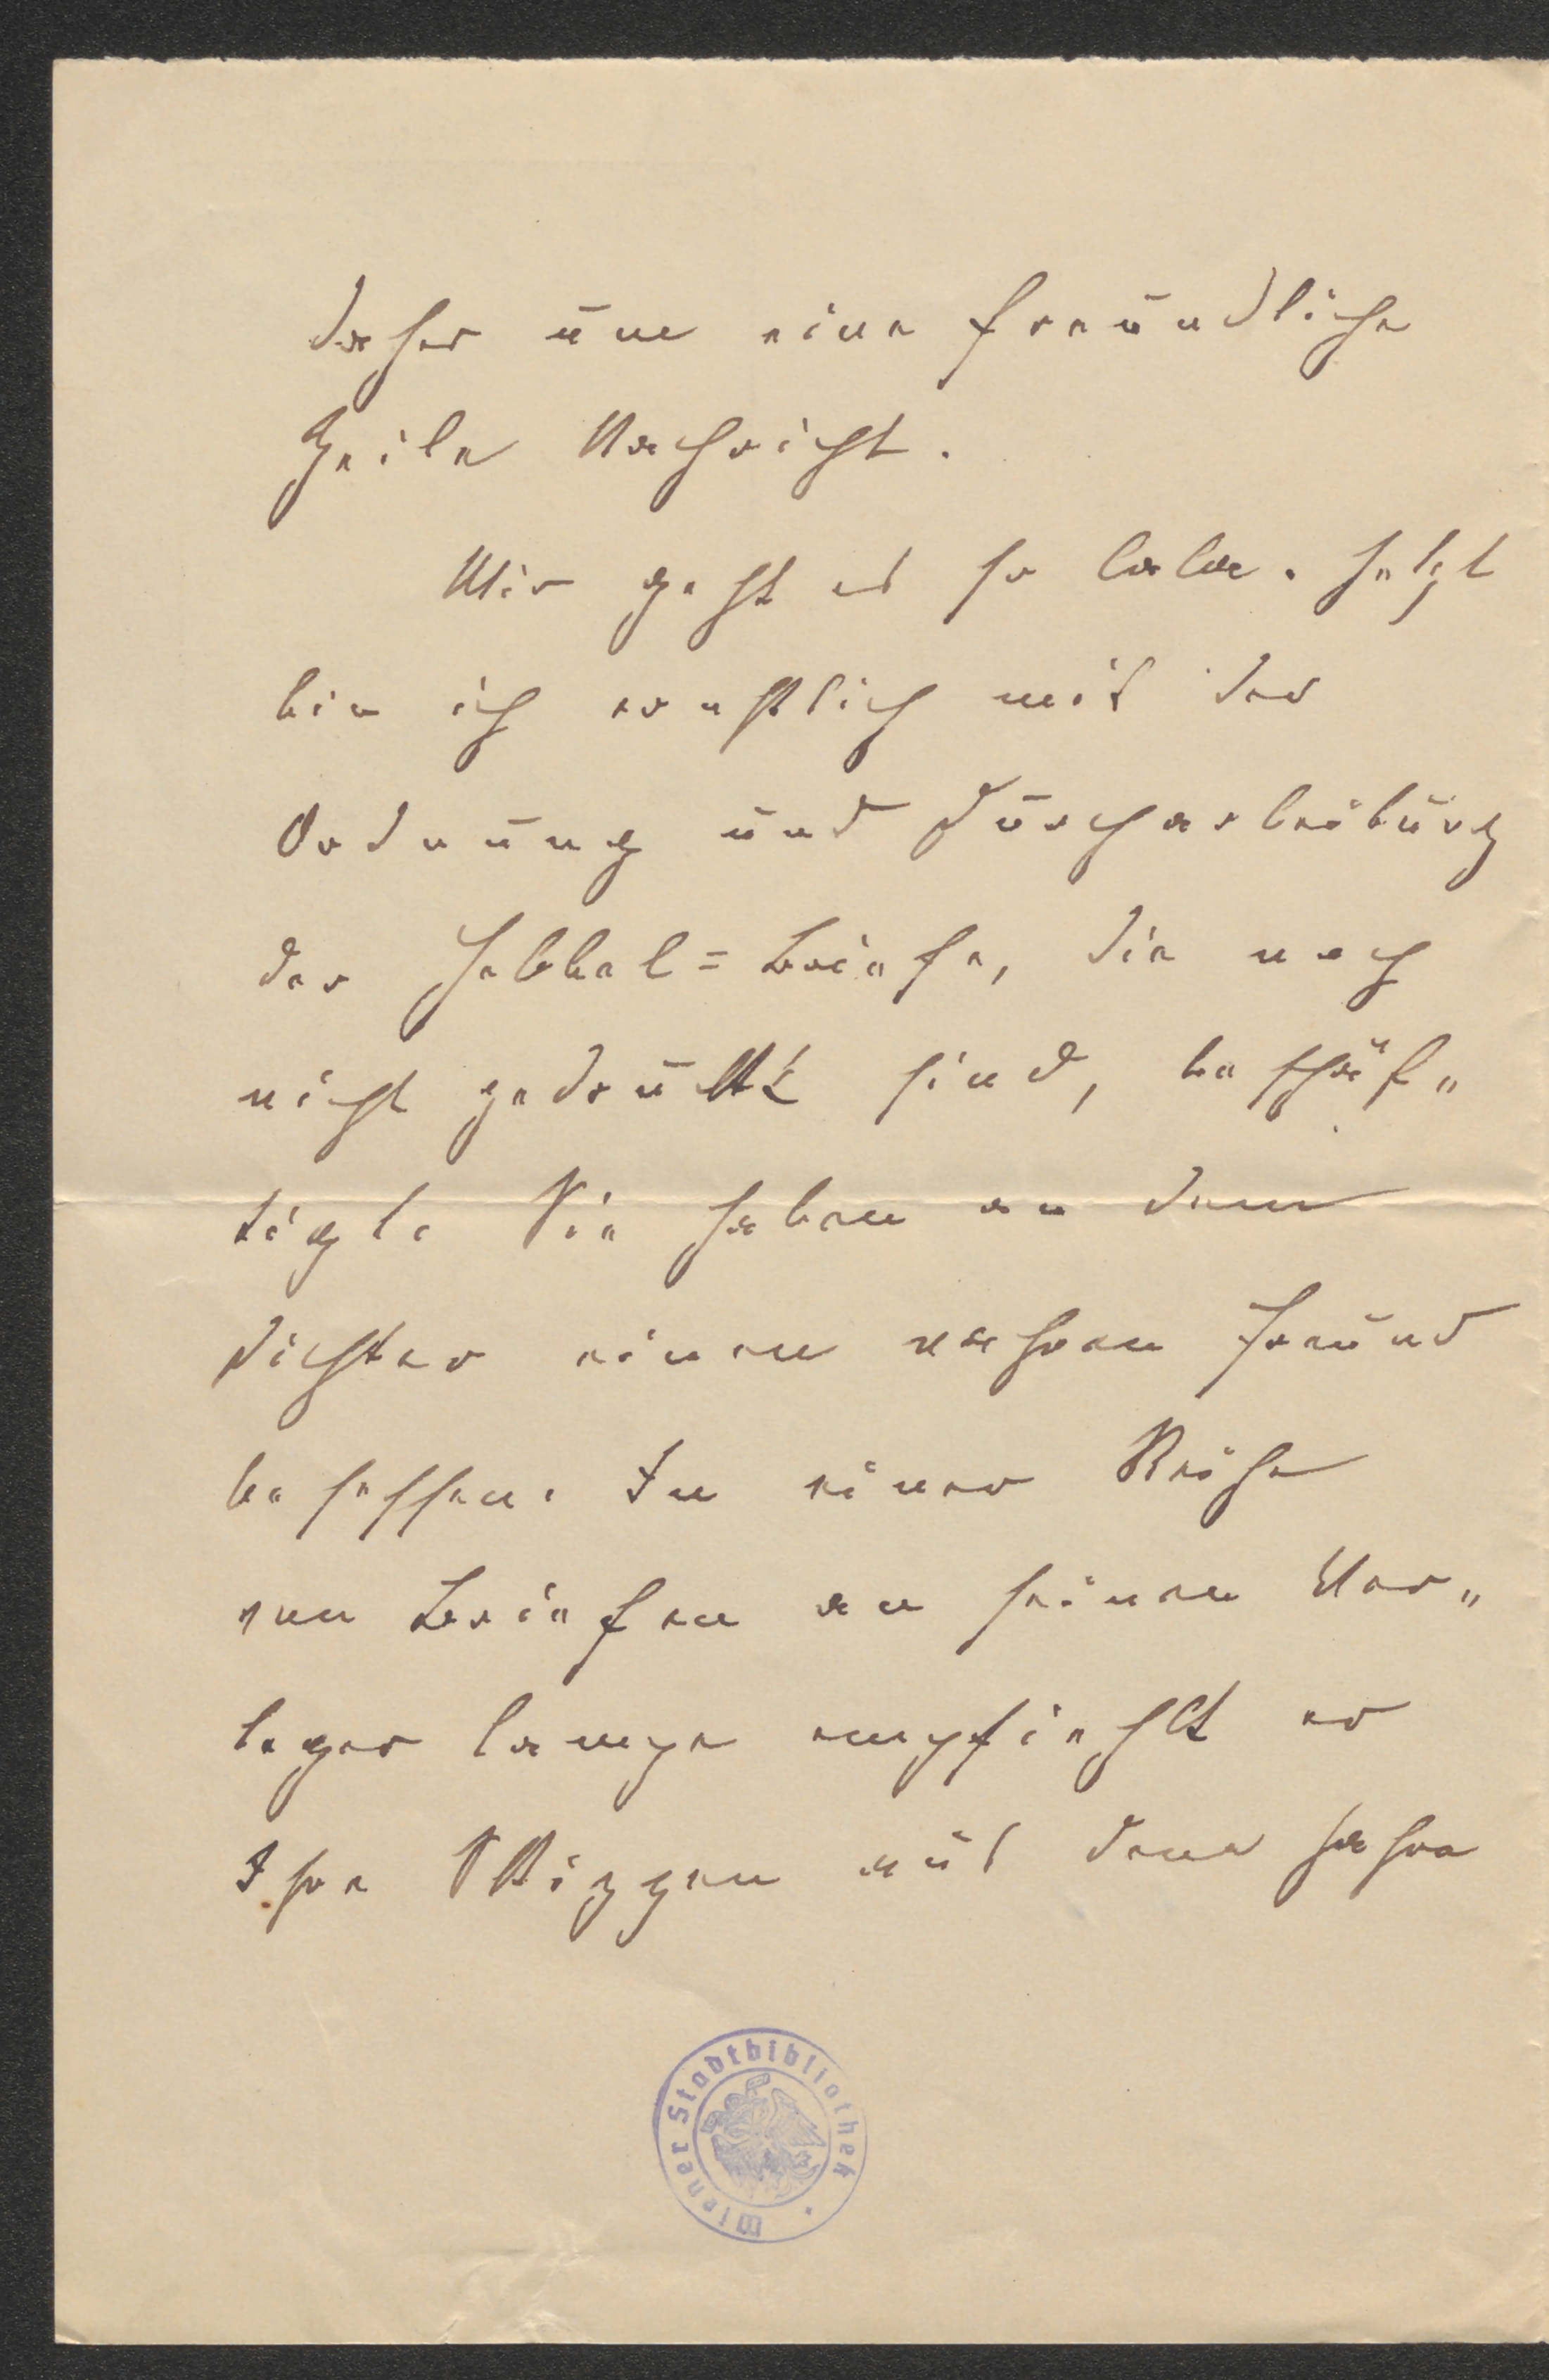 daher um eine freundliche
Zeile Nachricht.
Mir geht es so lala. Jetzt
bin ich ernstlich mit der
Ordnung und Durcharbeitung
der Hebbel=Briefe, die noch
nicht gedruckt sind, beschäf„
tigt. Sie haben an dem
Dichter einen wahren Freund
besessen. In einer Reihe
von Briefen an seinen Ver„
leger Campe empfiehlt er
Ihre Skizzen aus dem Jahre
Wiener Stadtbibliothek